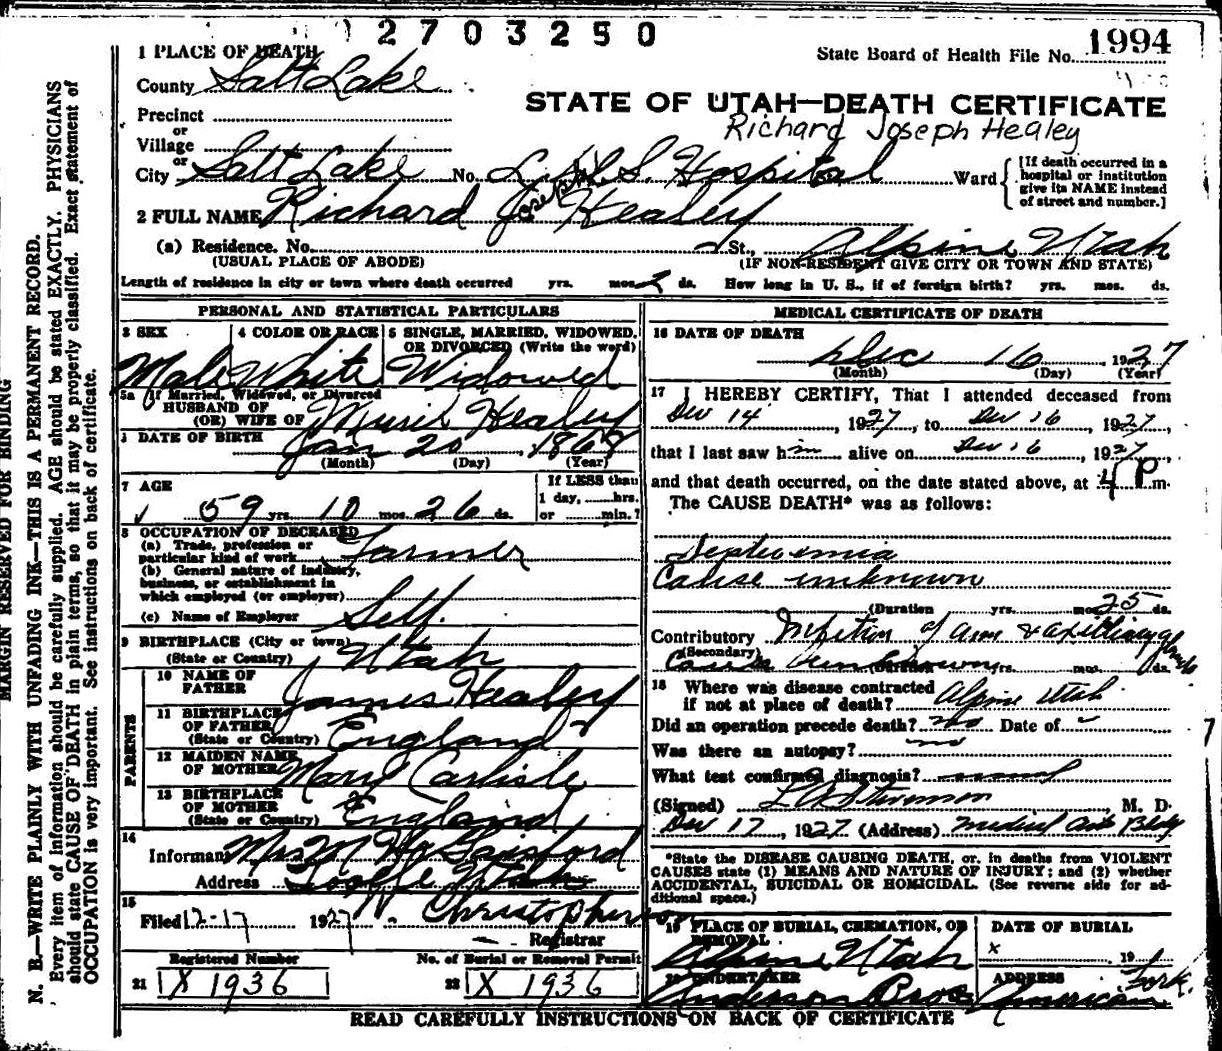 2703250
1 PLACE OF DEATH
State Board of Health File No. 1994
County Salt Lake
STATE OF UTAH—DEATH CERTIFICATE
Precinct
Richard Joseph Healey
or
Village
or
City Salt Lake No. L.D.S. Hospital Ward
[If death occurred in a hospital or institution give its NAME instead of street and number.]
2 FULL NAME Richard Joseph Healey
(a) Residence. No. St., Alpine Utah
(USUAL PLACE OF ABODE) (IF NON-RESIDENT GIVE CITY OR TOWN AND STATE)
Length of residence in city or town where death occurred yrs. mos. 2 ds. How long in U. S., if of foreign birth? yrs. mos. ds.
PERSONAL AND STATISTICAL PARTICULARS
3 SEX 4 COLOR OR RACE 5 SINGLE, MARRIED, WIDOWED, OR DIVORCED (Write the word)
Male White Widowed
5a If Married, Widowed, or Divorced
HUSBAND OF
(OR) WIFE OF Healey
DATE OF BIRTH Jan 20 1868
(Month) (Day) (Year)
7 AGE
If LESS than
1 day, hrs.
or min.?
59 yrs. 10 mos. 26 ds.
8 OCCUPATION OF DECEASED
(a) Trade, profession or
particular kind of work Farmer
(b) General nature of industry,
business, or establishment in
which employed (or employer)
(c) Name of Employer Self.
9 BIRTHPLACE (City or town)
(State or Country) Utah
PARENTS
10 NAME OF
FATHER James Healey
11 BIRTHPLACE
OF FATHER
(State or Country) England
12 MAIDEN NAME
OF MOTHER Mary Carlisle
13 BIRTHPLACE
OF MOTHER
(State or Country) England
14
Informant Mrs
Address Utah
15
Filed 12-17 1927 Christopherson
Registrar
Registered Number No. of Burial or Removal Permit
21 X 1936 22 X 1936
MEDICAL CERTIFICATE OF DEATH
16 DATE OF DEATH
Dec 16 1927
(Month) (Day) (Year)
17 I HEREBY CERTIFY, That I attended deceased from
Dec 14, 1927, to Dec 16, 1927,
that I last saw him alive on Dec 16, 1927,
and that death occurred, on the date stated above, at 4 P m.
The CAUSE DEATH* was as follows:
Septicemia
Cause unknown
(Duration yrs. mos. 25 ds.
Contributory Infection of arm & axilliary glands
(Secondary)
Cause unknown (Duration yrs. mos. ds.
18 Where was disease contracted
if not at place of death? Alpine Utah
Did an operation precede death? no Date of
Was there an autopsy? no
What test confirmed diagnosis?
(Signed) Stevenson, M. D.
Dec 17, 1927 (Address) Medical Arts Bldg
*State the DISEASE CAUSING DEATH, or, in deaths from VIOLENT
CAUSES state (1) MEANS AND NATURE OF INJURY; and (2) whether
ACCIDENTAL, SUICIDAL OR HOMICIDAL. (See reverse side for ad-
ditional space.)
19 PLACE OF BURIAL, CREMATION, OR REMOVAL DATE OF BURIAL
Alpine Utah x 19
20 UNDERTAKER ADDRESS
Anderson Bros American Fork.
READ CAREFULLY INSTRUCTIONS ON BACK OF CERTIFICATE
MARGIN RESERVED FOR BINDING
N. B.—WRITE PLAINLY WITH UNFADING INK—THIS IS A PERMANENT RECORD.
Every item of information should be carefully supplied. AGE should be stated EXACTLY. PHYSICIANS
should state CAUSE OF DEATH in plain terms, so that it may be properly classified. Exact statement of
OCCUPATION is very important. See instructions on back of certificate.